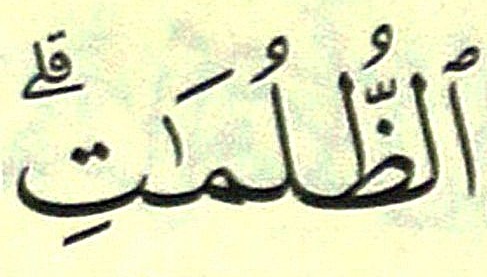 ٱلظُّلُمَـٰتِ ۖ